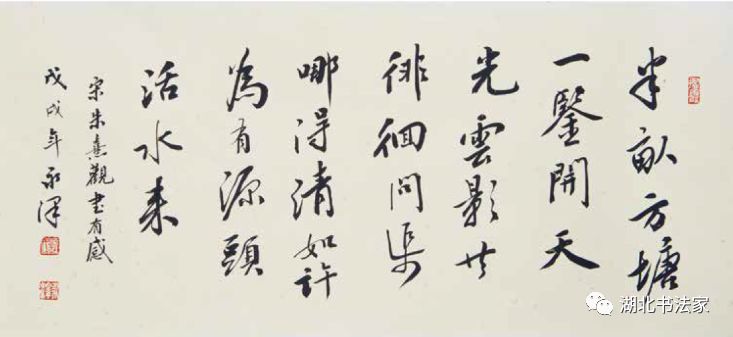 半畝方塘
一鑒開天
光雲影共
徘徊問渠
哪得清如許
為有源頭
活水來
宋朱熹觀書有感
戊戌年永澤
湖北书法家